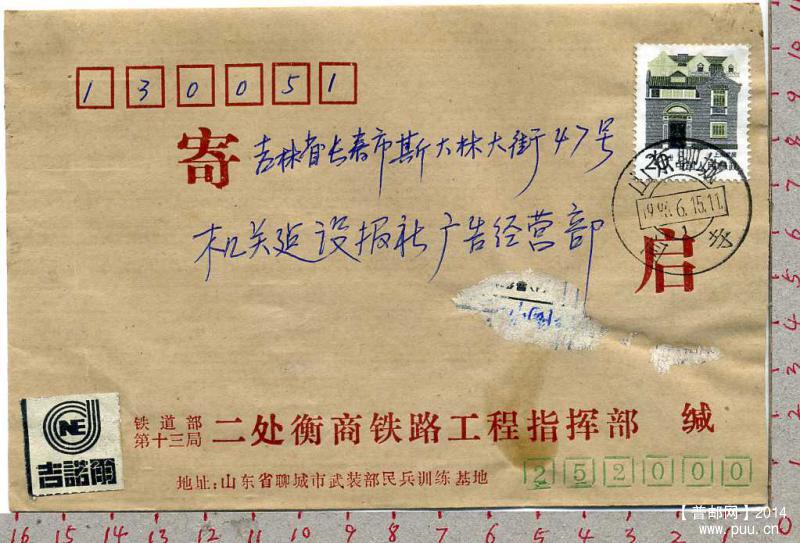 130051
寄 吉林省长春市斯大林大街47号
机关建设报社广告经营部
启
山东聊城
199 . 6. 15. 11
NE
吉諾爾
铁道部
第十三局 二处衡商铁路工程指挥部 缄
地址:山东省聊城市武装部民兵训练基地 252000
16 15 14 13 12 11 10 9 8 7 6 5 4 3 2 1 0
【普邮网】2014
www.puu.cn